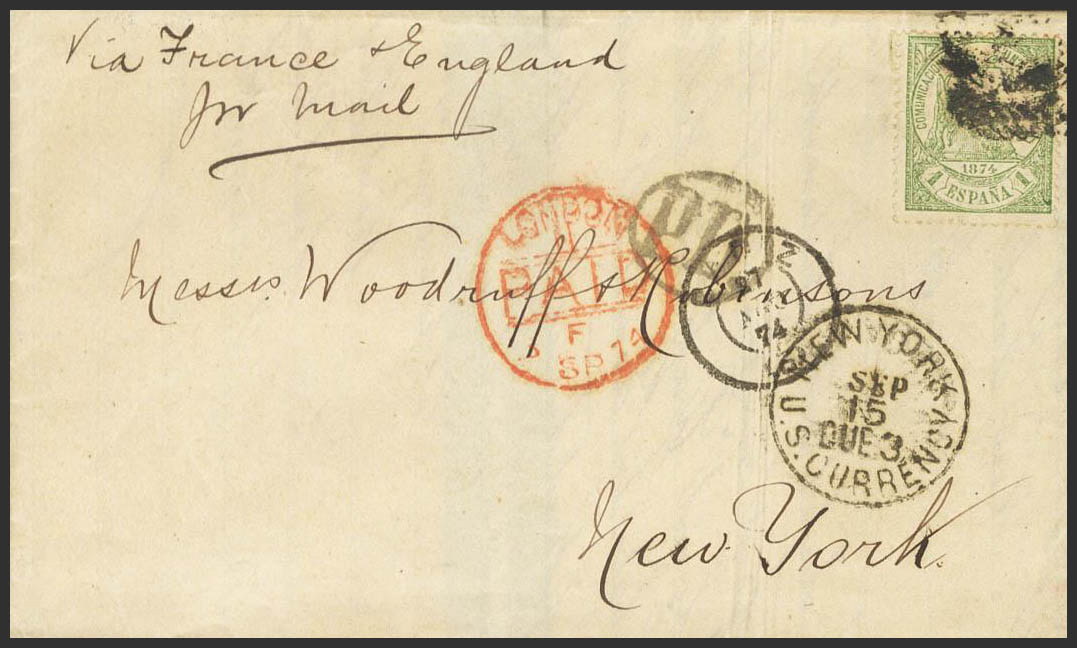 Via France & England
per Mail
COMUNICACIO
1874
1 ESPAÑA 1
LONDON
PAID
F
SP 74
Messrs Woodruff & Robinsons
27
74
NEW YORK
SEP
15
DUE 3
U.S. CURRENCY
New York.